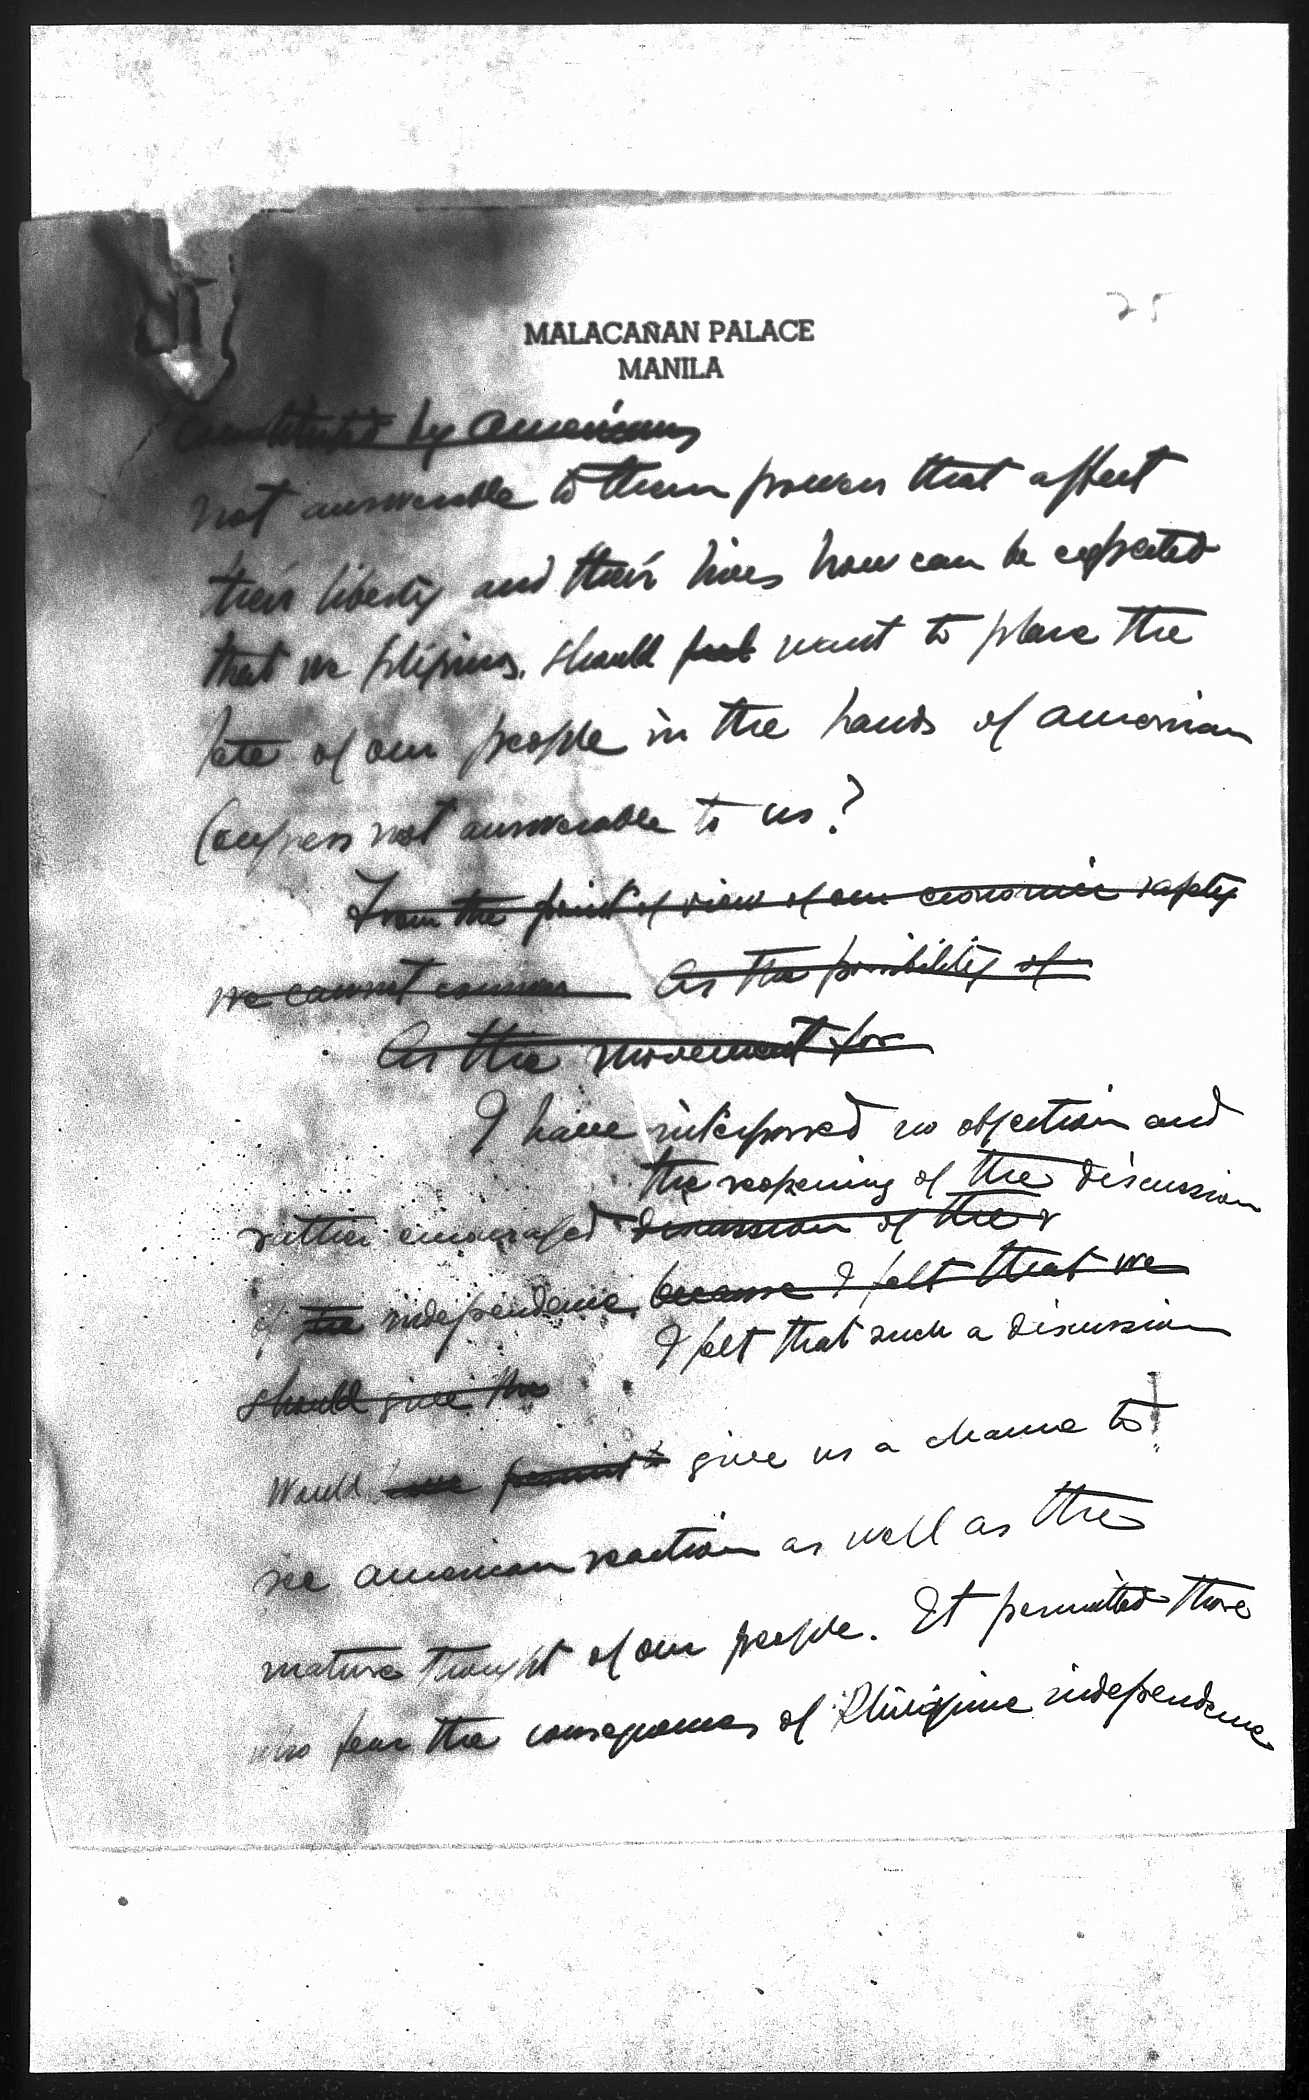 25
MALACAÑAN PALACE
MANILA
constituted by Americans
not answerable to them powers that affect
their liberty and their lives how can be expected
that we Filipinos, should feel want to place the
fate of our people in the hands of American
Congress not answerable to us?
From the point of view of our economic safety
we cannot As the possibility of
As the movement for
I have interposed no objection and
the reopening of the discussion
rather encouraged discussion of the r
of the independence, because I felt that we
I felt that such a discussion
should give the
would have permit to give us a chance to
see American reaction as well as the
mature thought of our people. It permitted those
who fear the consequences of Philippine independence